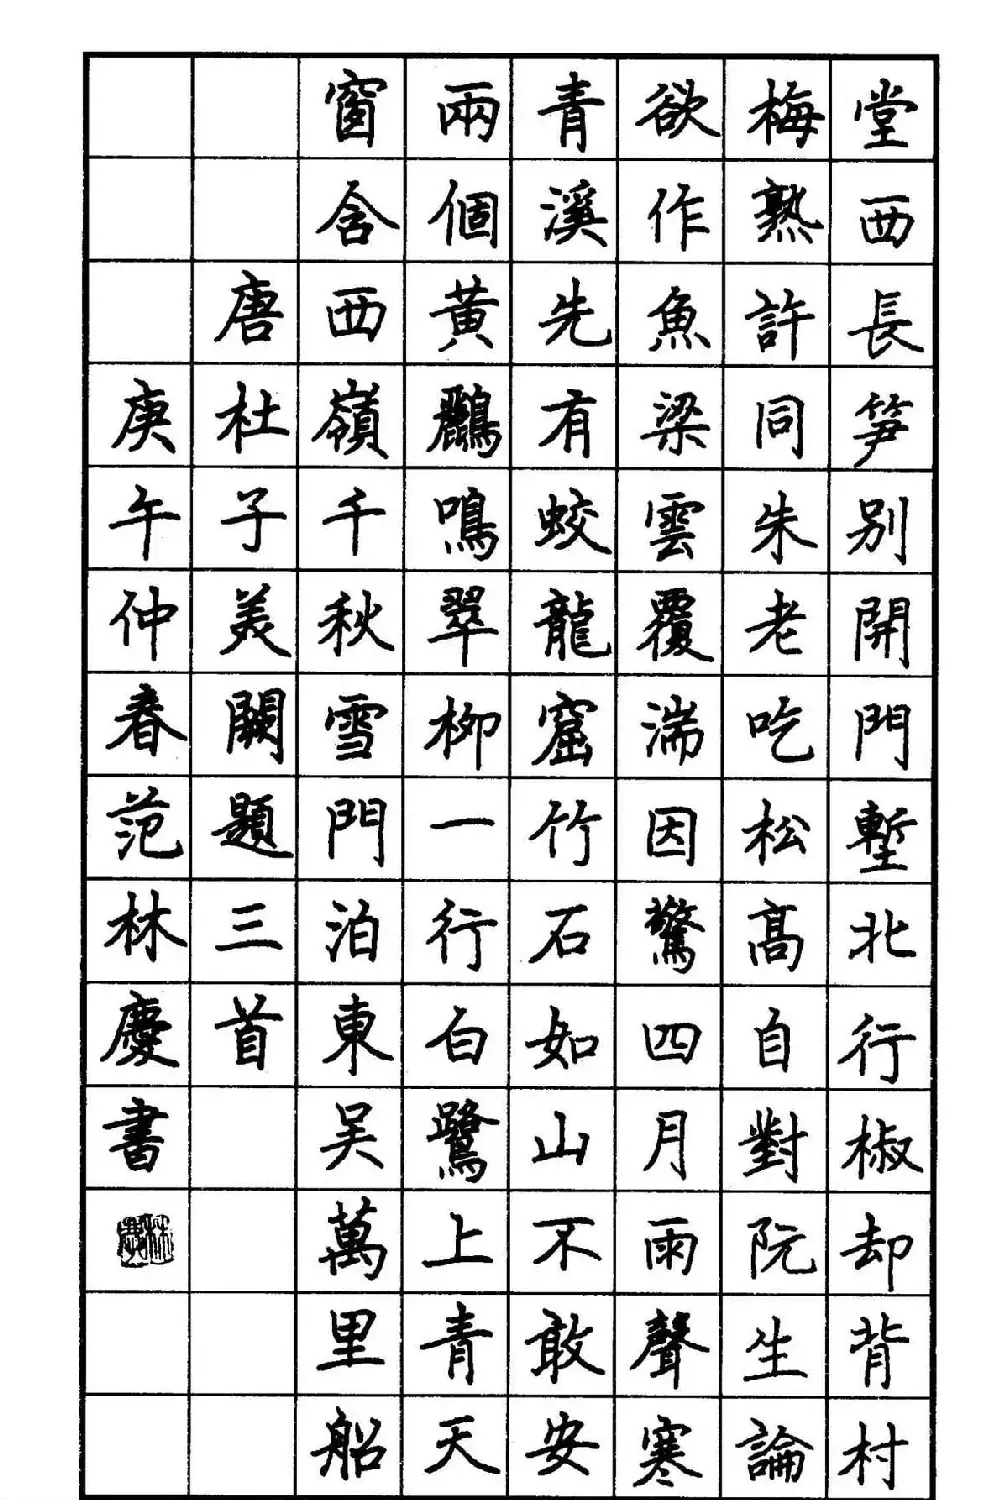 堂西長笋別開門塹北行椒却背村
梅熟許同朱老吃松高自對阮生論
欲作魚梁雲覆湍因驚四月雨聲寒
青溪先有蛟龍窟竹石如山不敢安
兩個黃鸝鳴翠柳一行白鷺上青天
窗含西嶺千秋雪門泊東吴萬里船
唐杜子美闕題三首
庚午仲春范林慶書
林慶